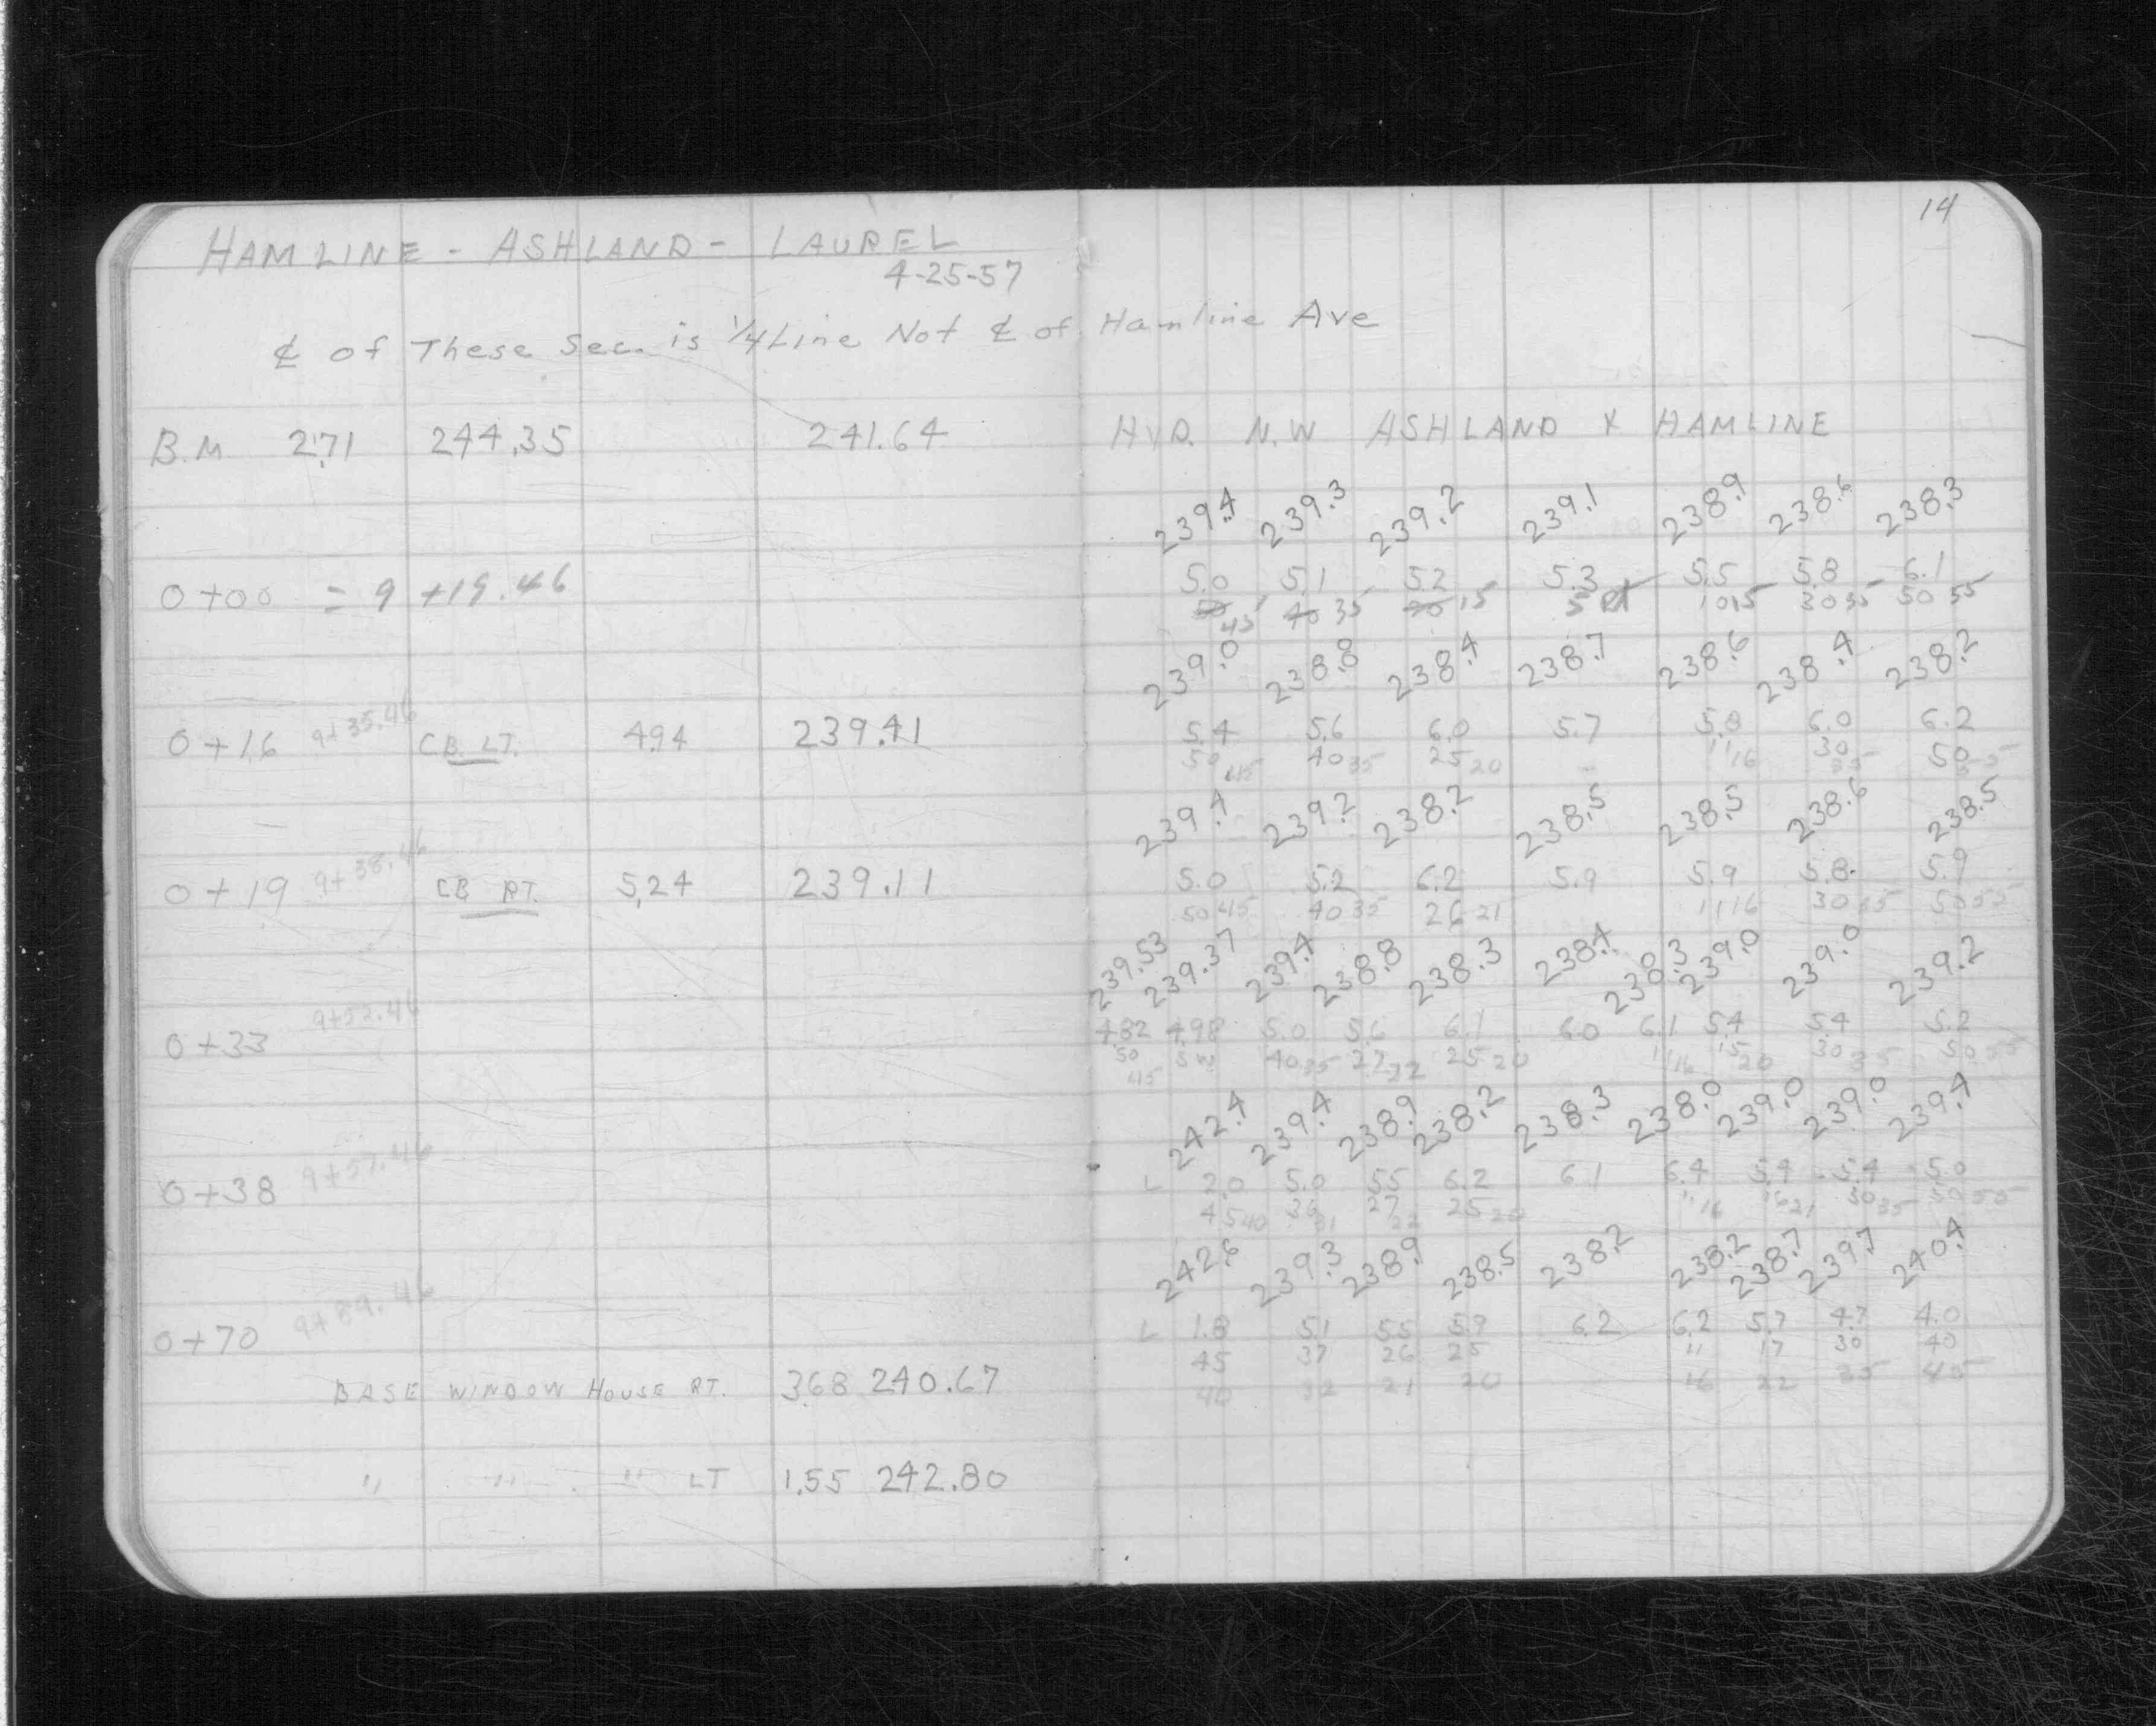 14
HAMLINE - ASHLAND - LAUREL
4-25-57
℄ of These Sec. is 1/4 Line Not ℄ of Hamline Ave
B.M 2.71 244.35 241.64 HYD. N.W ASHLAND X HAMLINE
239.4 239.3 239.2 239.1 238.9 238.6 238.3
0+00 = 9+19.46 5.0 5.1 5.2 5.3 5.5 5.8 6.1
50 45 40 35 20 15 5 10 15 30 35 50 55
239.0 238.8 238.4 238.7 238.6 238.4 238.2
0+16 9+35.46 CB. LT. 4.94 239.41 5.4 5.6 6.0 5.7 5.8 6.0 6.2
50 45 40 35 25 20 11 16 30 35 50 55
239.4 239.2 238.2 238.5 238.5 238.6 238.5
0+19 9+38.46 CB RT. 5.24 239.11 5.0 5.2 6.2 5.9 5.9 5.8 5.9
50 45 40 35 26 21 11 16 30 35 50 55
239.53 239.37 239.4 238.8 238.3 238.4 238.3 239.0 239.0 239.2
0+33 9+52.46 4.82 4.98 5.0 5.6 6.1 6.0 6.1 5.4 5.4 5.2
50 45 SW 40 35 27 22 25 20 11 16 15 20 30 35 50 55
242.4 239.4 238.9 238.2 238.3 238.0 239.0 239.0 239.4
0+38 9+57.46 L 2.0 5.0 5.5 6.2 6.1 6.4 5.4 5.4 5.0
45 40 36 31 27 22 25 20 11 16 16 21 30 35 50 55
242.6 239.3 238.9 238.5 238.2 238.2 238.7 239.7 240.4
0+70 9+89.46 L 1.8 5.1 5.5 5.9 6.2 6.2 5.7 4.7 4.0
45 37 26 25 11 17 30 40
BASE WINDOW HOUSE RT. 3.68 240.67 40 32 21 20 16 22 35 45
" " " LT 1.55 242.80